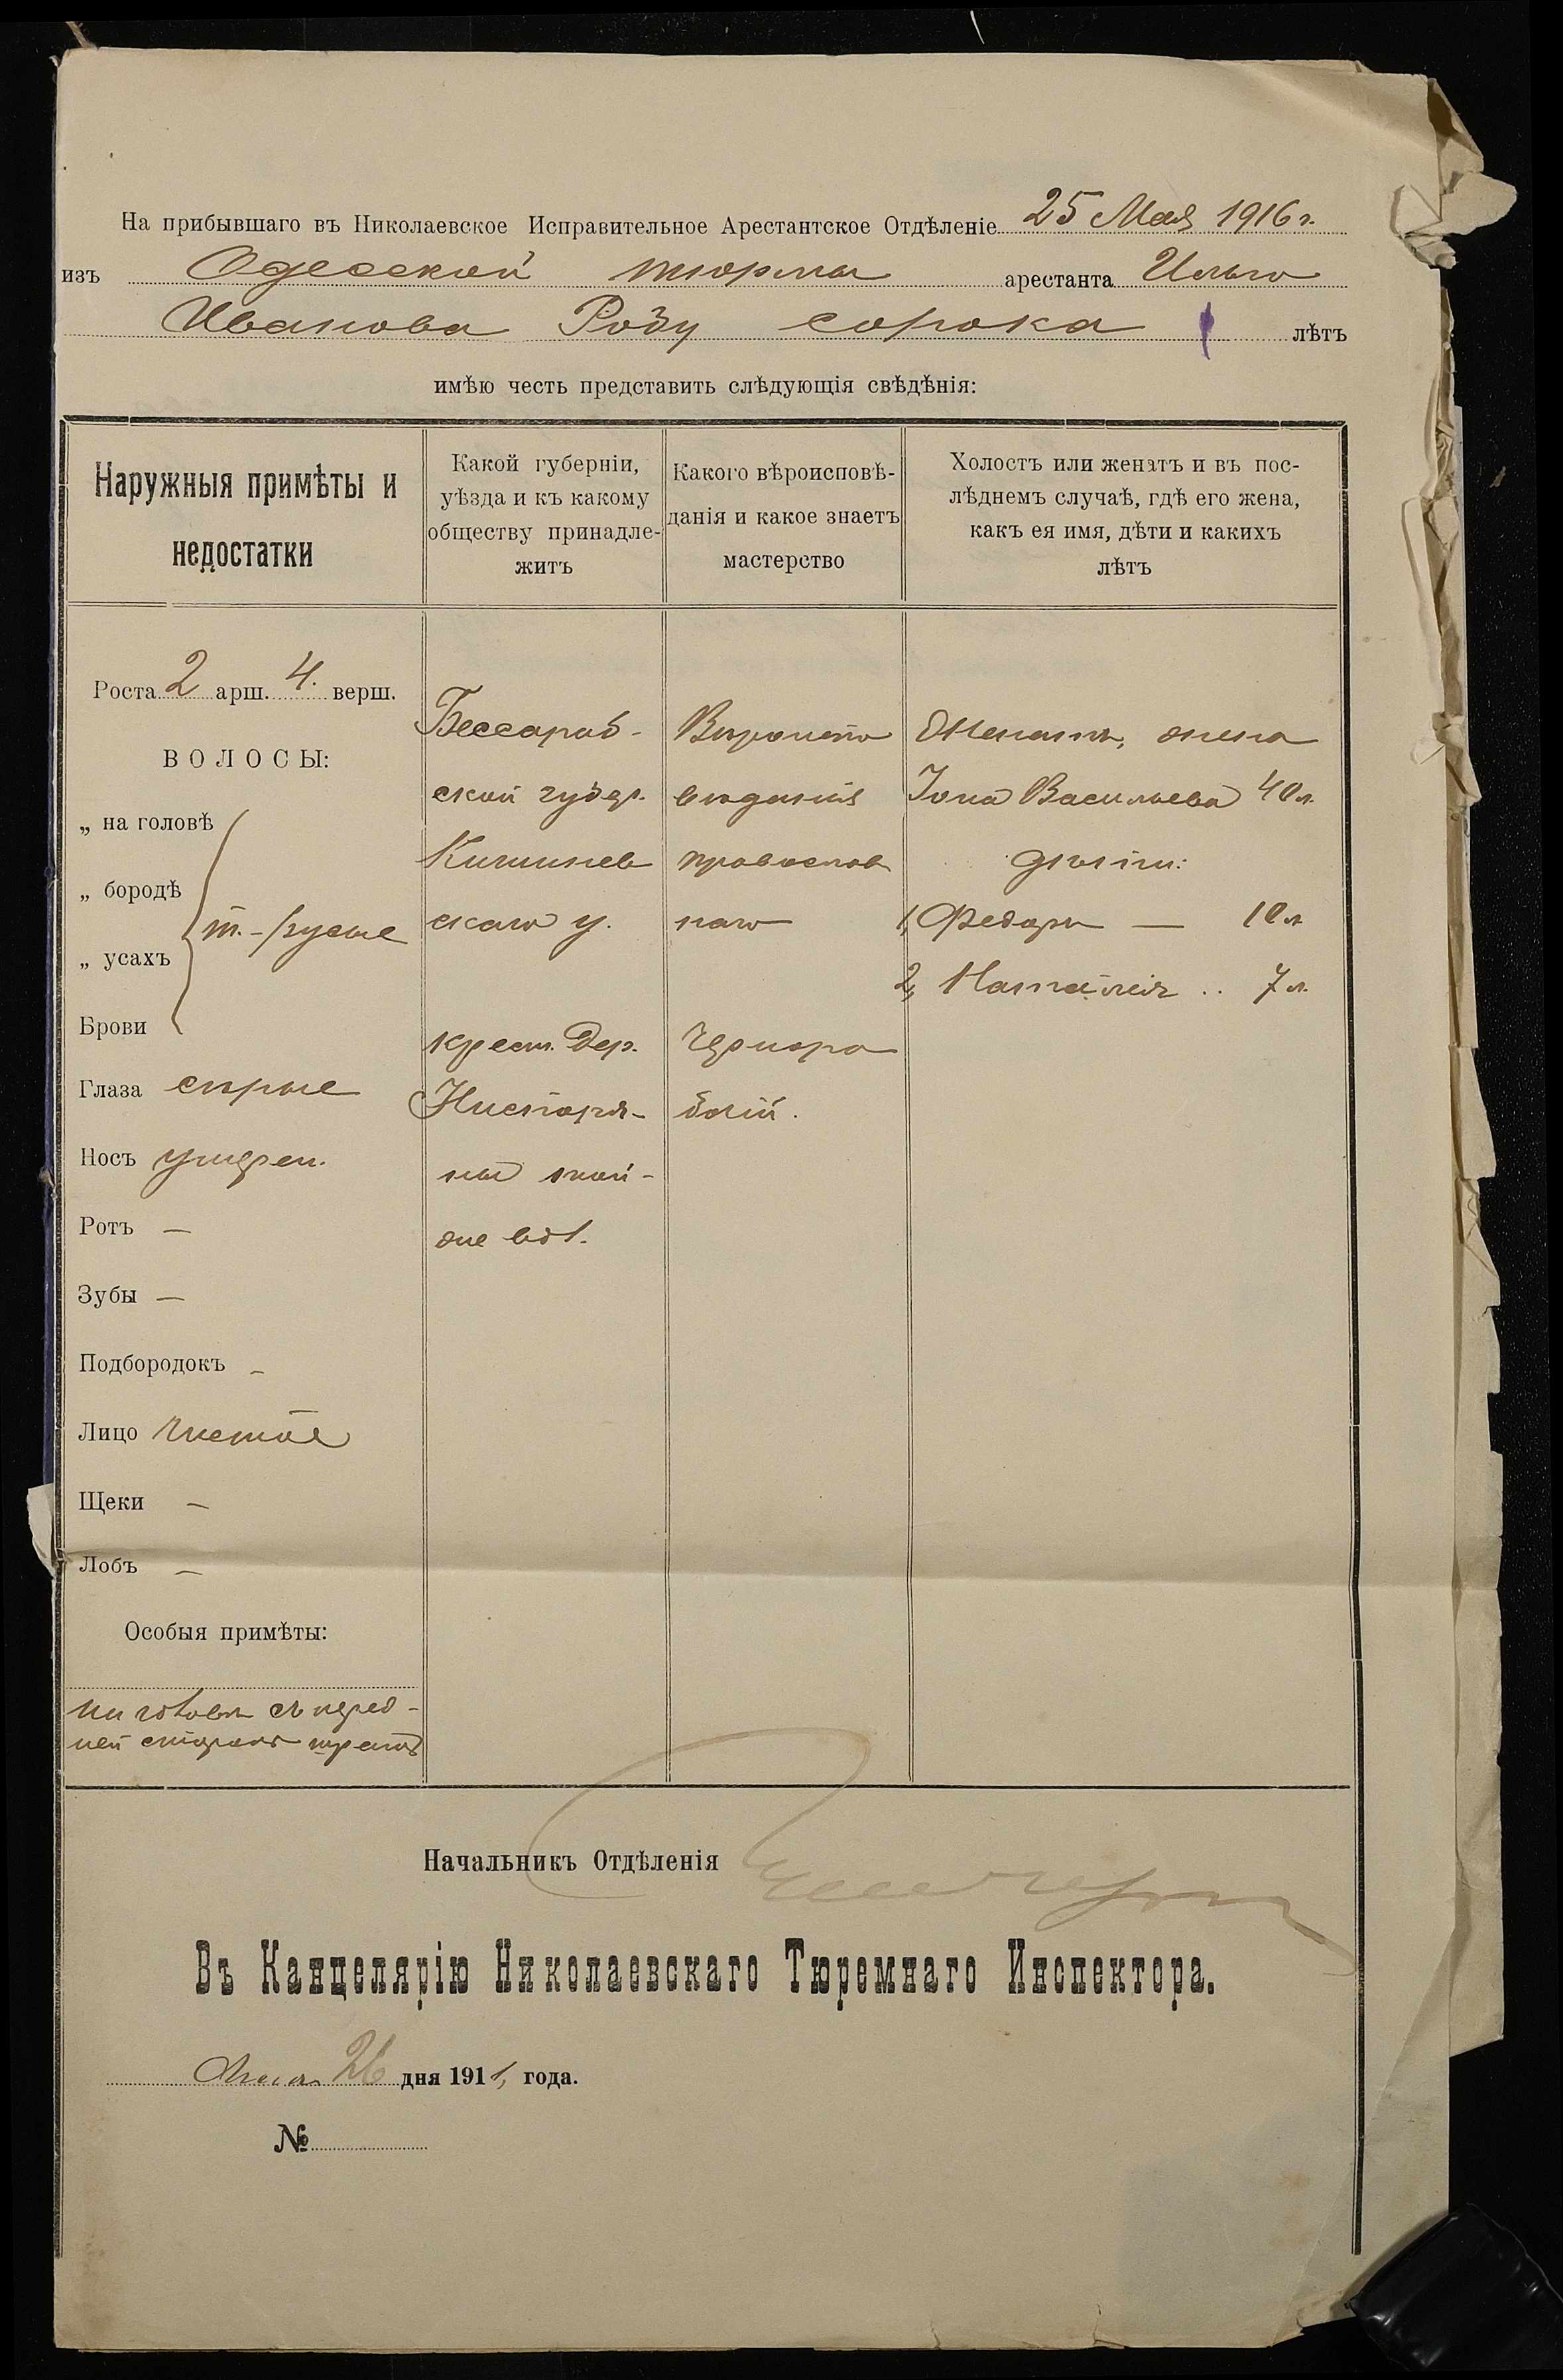 На прибывшаго въ Николаевское Исправительное Арестантское Отдѣленіе 25 Мая 1916 г.
изъ Одесской тюрмы арестанта Илью
Иванова Робу сорока лѣтъ
имѣю честь представить слѣдующія свѣдѣнія:
Наружныя примѣты и
недостатки
Какой губерніи,
уѣзда и къ какому
обществу принадле-
житъ
Какого вѣроисповѣ-
данія и какое знаетъ
мастерство
Холостъ или женатъ и въ пос-
лѣднемъ случаѣ, гдѣ его жена,
какъ ея имя, дѣти и какихъ
лѣтъ
Роста 2 арш. 4. верш.
ВОЛОСЫ:
„ на головѣ
„ бородѣ
т.-русые
„ усахъ
Брови
Глаза сѣрые
Носъ умѣрен.
Ротъ —
Зубы —
Подбородокъ -
Лицо чистое
Щеки —
Лобъ —
Особыя примѣты:
на головѣ съ перед-
ней стороны
Бессараб-
ской губер.
Кишинев
скаго у.
крест. дер.
Нисторя-
ны
же вол.
Вѣроиспо
вѣданія
православ
наго
Чернора
бочій.
Женатъ, жена
Іона Васильева 40 л.
дѣти:
1, Федоръ — 10 л.
2, Наталія .. 7 л.
Начальникъ Отдѣленія
Въ Канцелярію Николаевскаго Тюремнаго Инспектора.
Мая 26 дня 191 года.
№